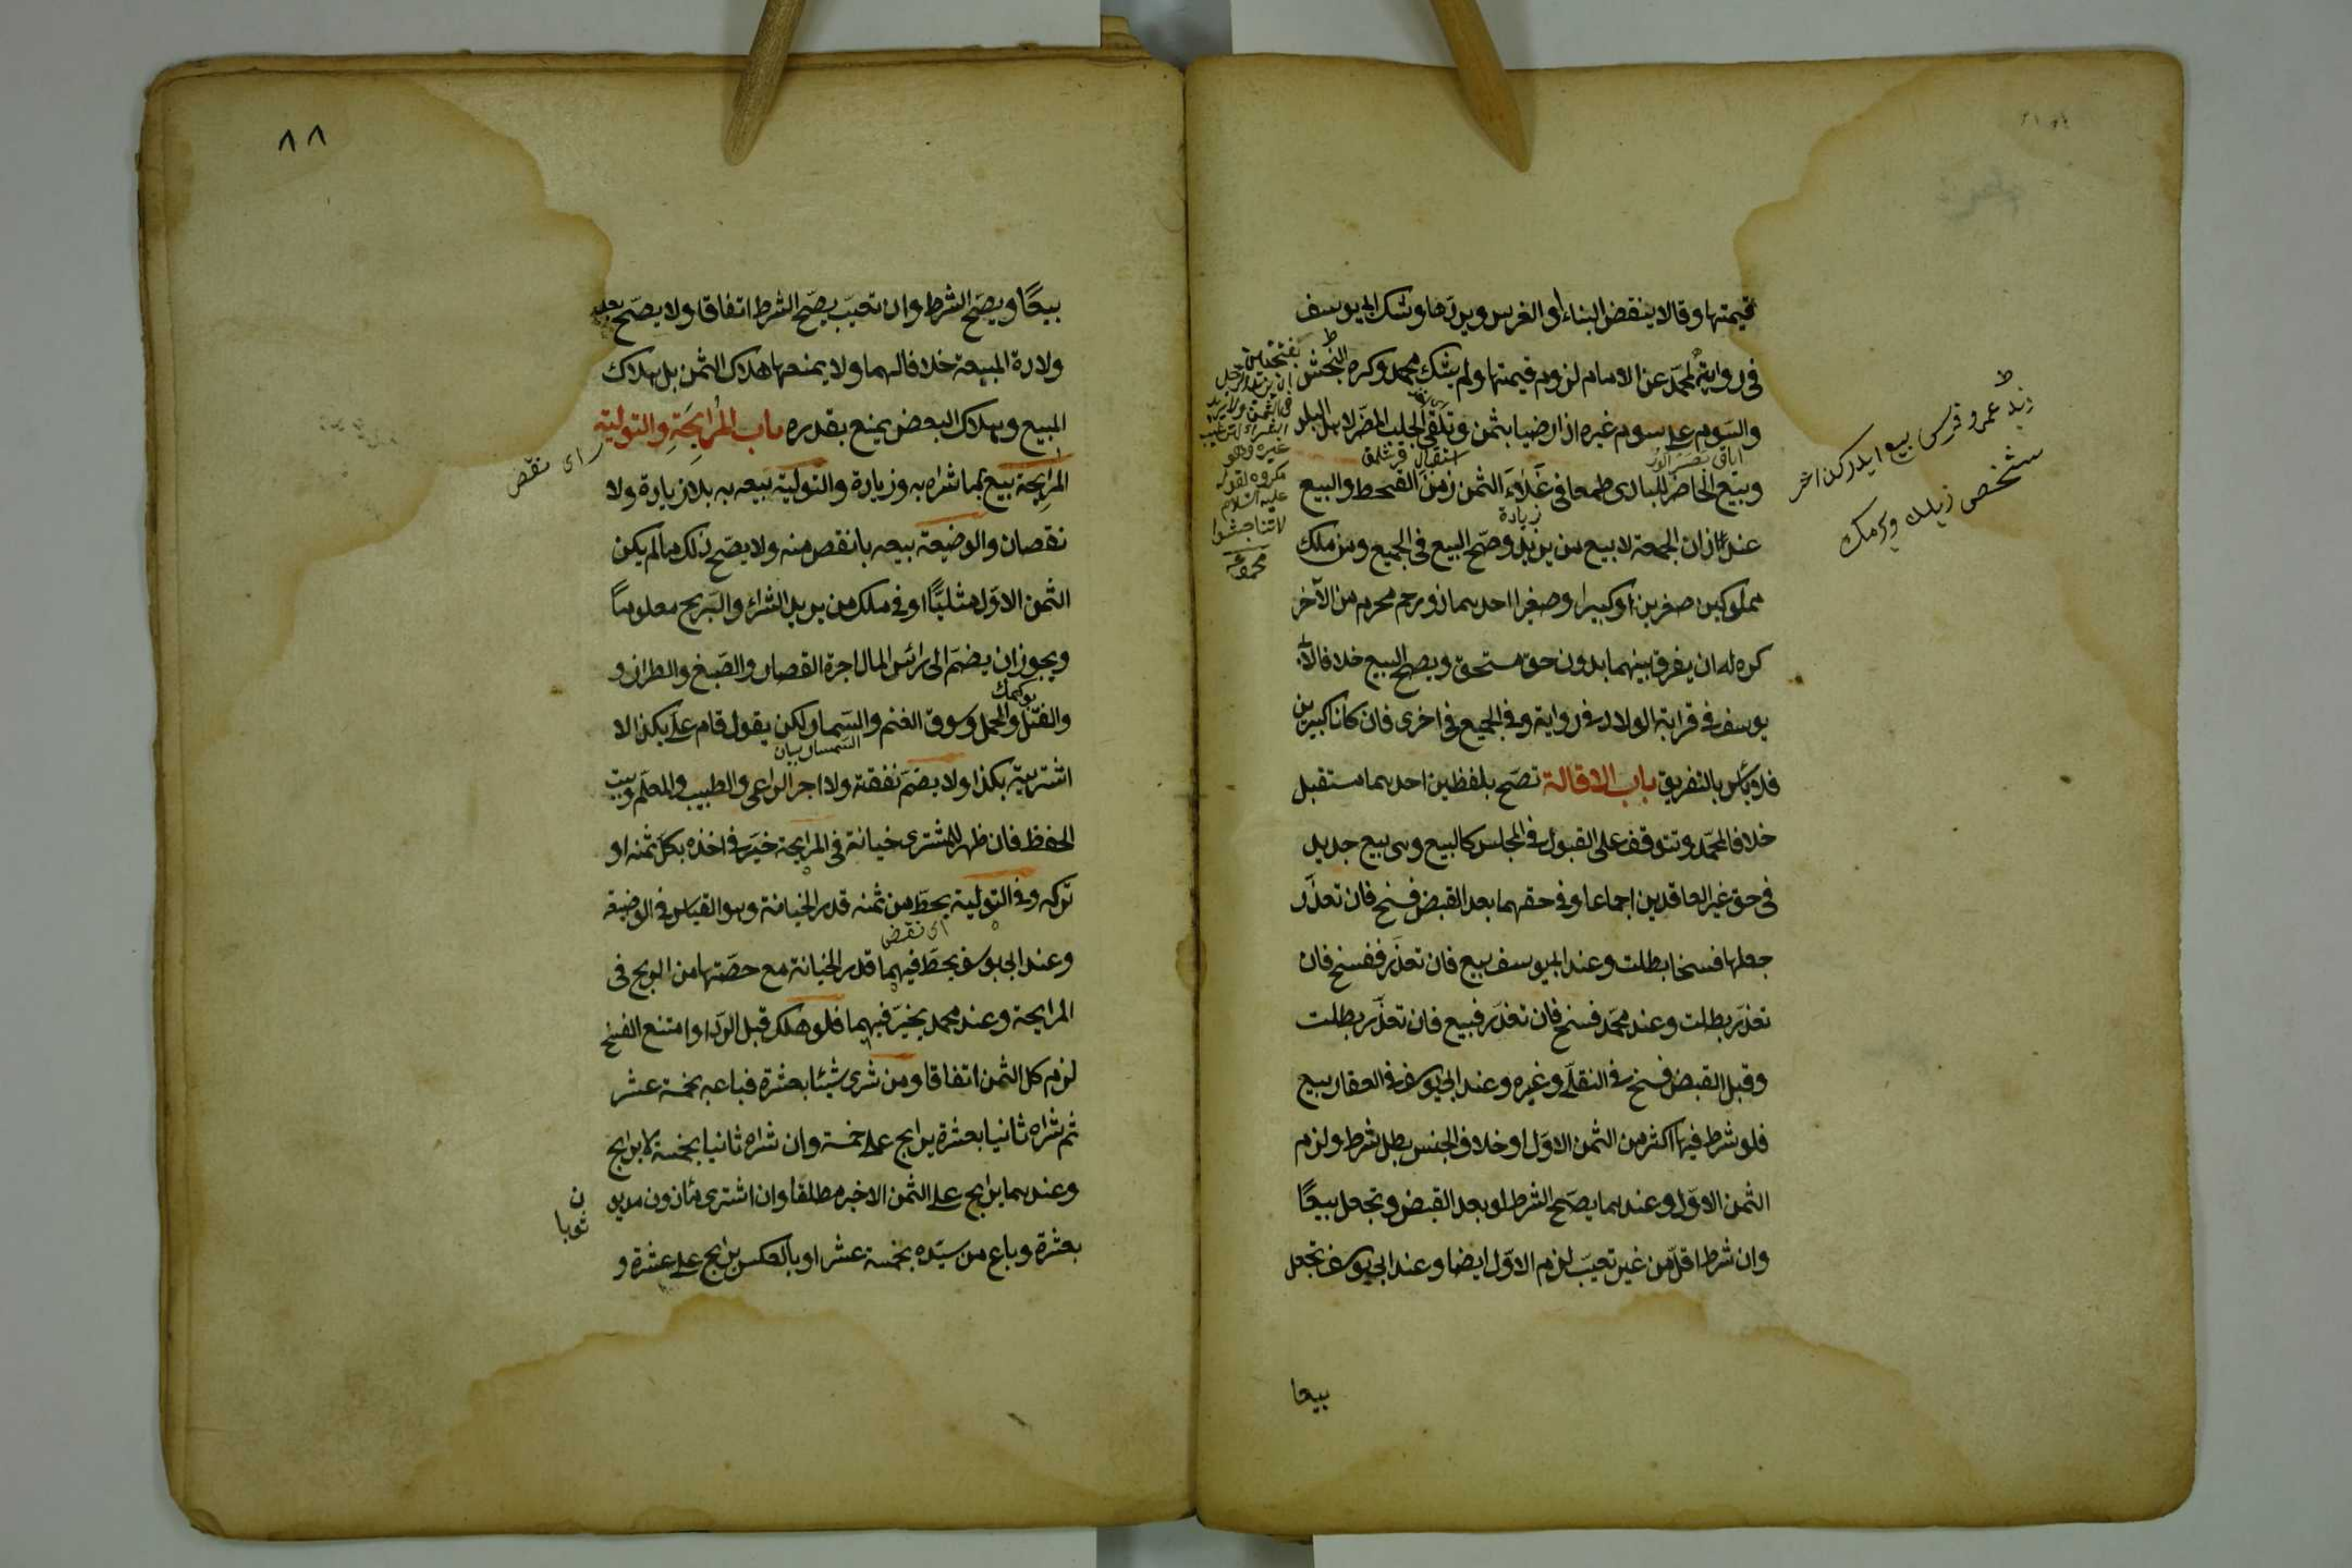 قيمتها وقالا ينقض البناء او الغرس ويردها وشك ابي يوسف
في رواية لمحمد عن الامام لزوم قيمتها ولم يشك محمد وكره النجش
والسوم على سوم غيره اذا رضيا بثمن وتلقى الجلب المضر لاهل البلد
وبيع الحاضر للبادى طمعا في غلاء الثمن زمن القحط والبيع
عند اذان الجمعة لا بيع من يزيد وصح البيع في الجميع ومن ملك
مملوكين صغرين او كبيرا وصغيرا احدهما ذو رحم محرم من الآخر
كره له ان يفرق بينهما بدون حق مستحق ويصح البيع خلافا لابى
يوسف في قرابة الولاد في رواية وفي الجميع في اخرى فان كانا كبيرين
فلا بأس بالتفريق باب الاقالة تصح بلفظين احدهما مستقبل
خلافا لمحمد وتتوقف على القبول في المجلس كالبيع وهى بيع جديد
في حق غير العاقدين اجماعا وفي حقهما بعد القبض فسخ فان تعذر
جعلها فسخا بطلت وعند ابي يوسف بيع فان تعذر ففسخ فان
تعذر بطلت وعند محمد فسخ فان تعذر فبيع فان تعذر بطلت
وقبل القبض فسخ في النقلى وغيره وعند ابي يوسف في العقار بيع
فلو شرط فيها اكثر من الثمن الاول او خلاف الجنس بطل شرط ولزم
الثمن الاول وعندهما يصح الشرط لو بعد القبض وتجعل بيعًا
وان شرط اقل من غير تعيب لزم الاول ايضا وعند ابي يوسف تجعل
بيعا
زيد عمرو قرسى بيع ايدركن
شخص زيلك ويرمك
بفتحتين
ان يزيد الرجل
في الثمن ولا يريد
الشراء لترغيب
غيره وهو
مكروه لقوله
عليه السلام
لا تناجشوا
زيادة
٨٨
بيعًا ويصح الشرط وان تعيب يصح الشرط اتفاقا ولا يصح بعد
ولادة المبيعة خلافا لهما ولا يمنعها هلاك الثمن بل هلاك
المبيع وهلاك البعض يمنع بقدره باب المرابحة والتولية
المرابحة بيع بما شراه به وزيادة والتولية بيعه به بلا زيادة ولا
نقصان والوضيعة بيعه بانقص منه ولا يصح ذلك ما لم يكن
الثمن الاول مثليًا او في ملك من يريد الشراء والربح معلومًا
ويجوز ان يضم الى رأس المال اجرة القصار والصبغ والطراز و
والفتل والحمل وسوق الغنم والسمسار لكن يقول قام على بكذا لا
اشتريته بكذا ولا يضم نفقته ولا اجر الراعى والطبيب والمعلم وبيت
الحفظ فان ظهر للمشترى خيانة في المرابحة خير في اخذه بكل ثمنه او
تركه وفي التولية يحط من ثمنه قدر الخيانة وهو القياس في الوضيعة
وعند ابي يوسف يحط فيهما قدر الخيانة مع حصتها من الربح في
المرابحة وعند محمد يخير فيهما فلو هلك قبل الرد او امتنع الفسخ
لزم كل الثمن اتفاقا ومن شرى شيئا بعشرة فباعه بخمسة عشر
ثم شراه ثانيا بعشرة يرابح على خمسة وان شراه ثانيا بخمسة لا يرابح
وعندهما يرابح على الثمن الاخير مطلقا وان اشترى مأذون مديون
ثوبا
بعشرة وباع من سيده بخمسة عشر او بالعكس يرابح على عشرة و
اى نقض
اى نقض